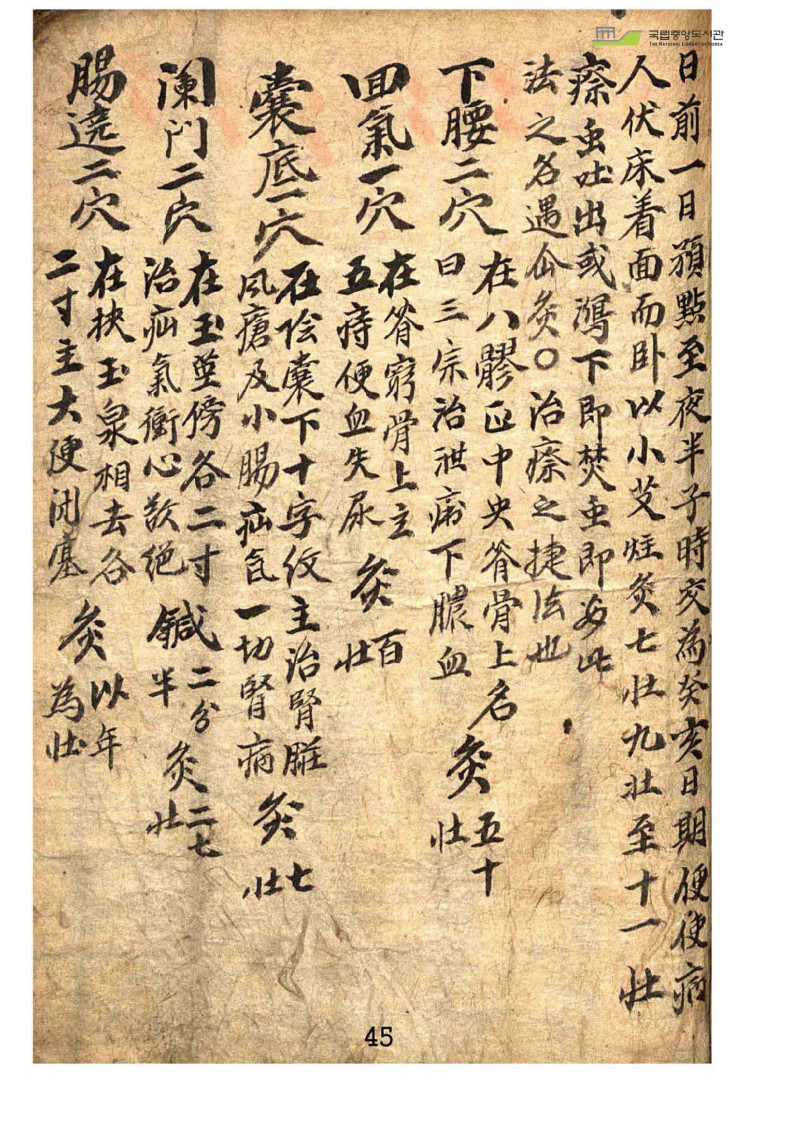 국립중앙도서관
THE NATIONAL LIBRARY OF KOREA
日前一日預點至夜半子時交為癸亥日期便使病
人伏床着面而卧以小艾炷灸七壯九壯至十一壯
瘵虫吐出或瀉下即焚虫即安此
法之名遇仙灸〇治瘵之捷法也
下腰二穴
在八髎正中央脊骨上名
曰三宗治泄痢下膿血
灸
五十
壯
囬氣一穴
在脊窮骨上主
五痔便血失尿
灸
百
壯
囊底一穴
在陰囊下十字紋主治腎脏
風瘡及小腸疝気一切腎病
灸
七
壯
闌門二穴
在玉莖傍各二寸
治疝氣衝心欲絶
鍼
二分
半
灸
二七
壯
腸遶二穴
在挾玉泉相去各
二寸主大便閉塞
灸
以年
為壯
45